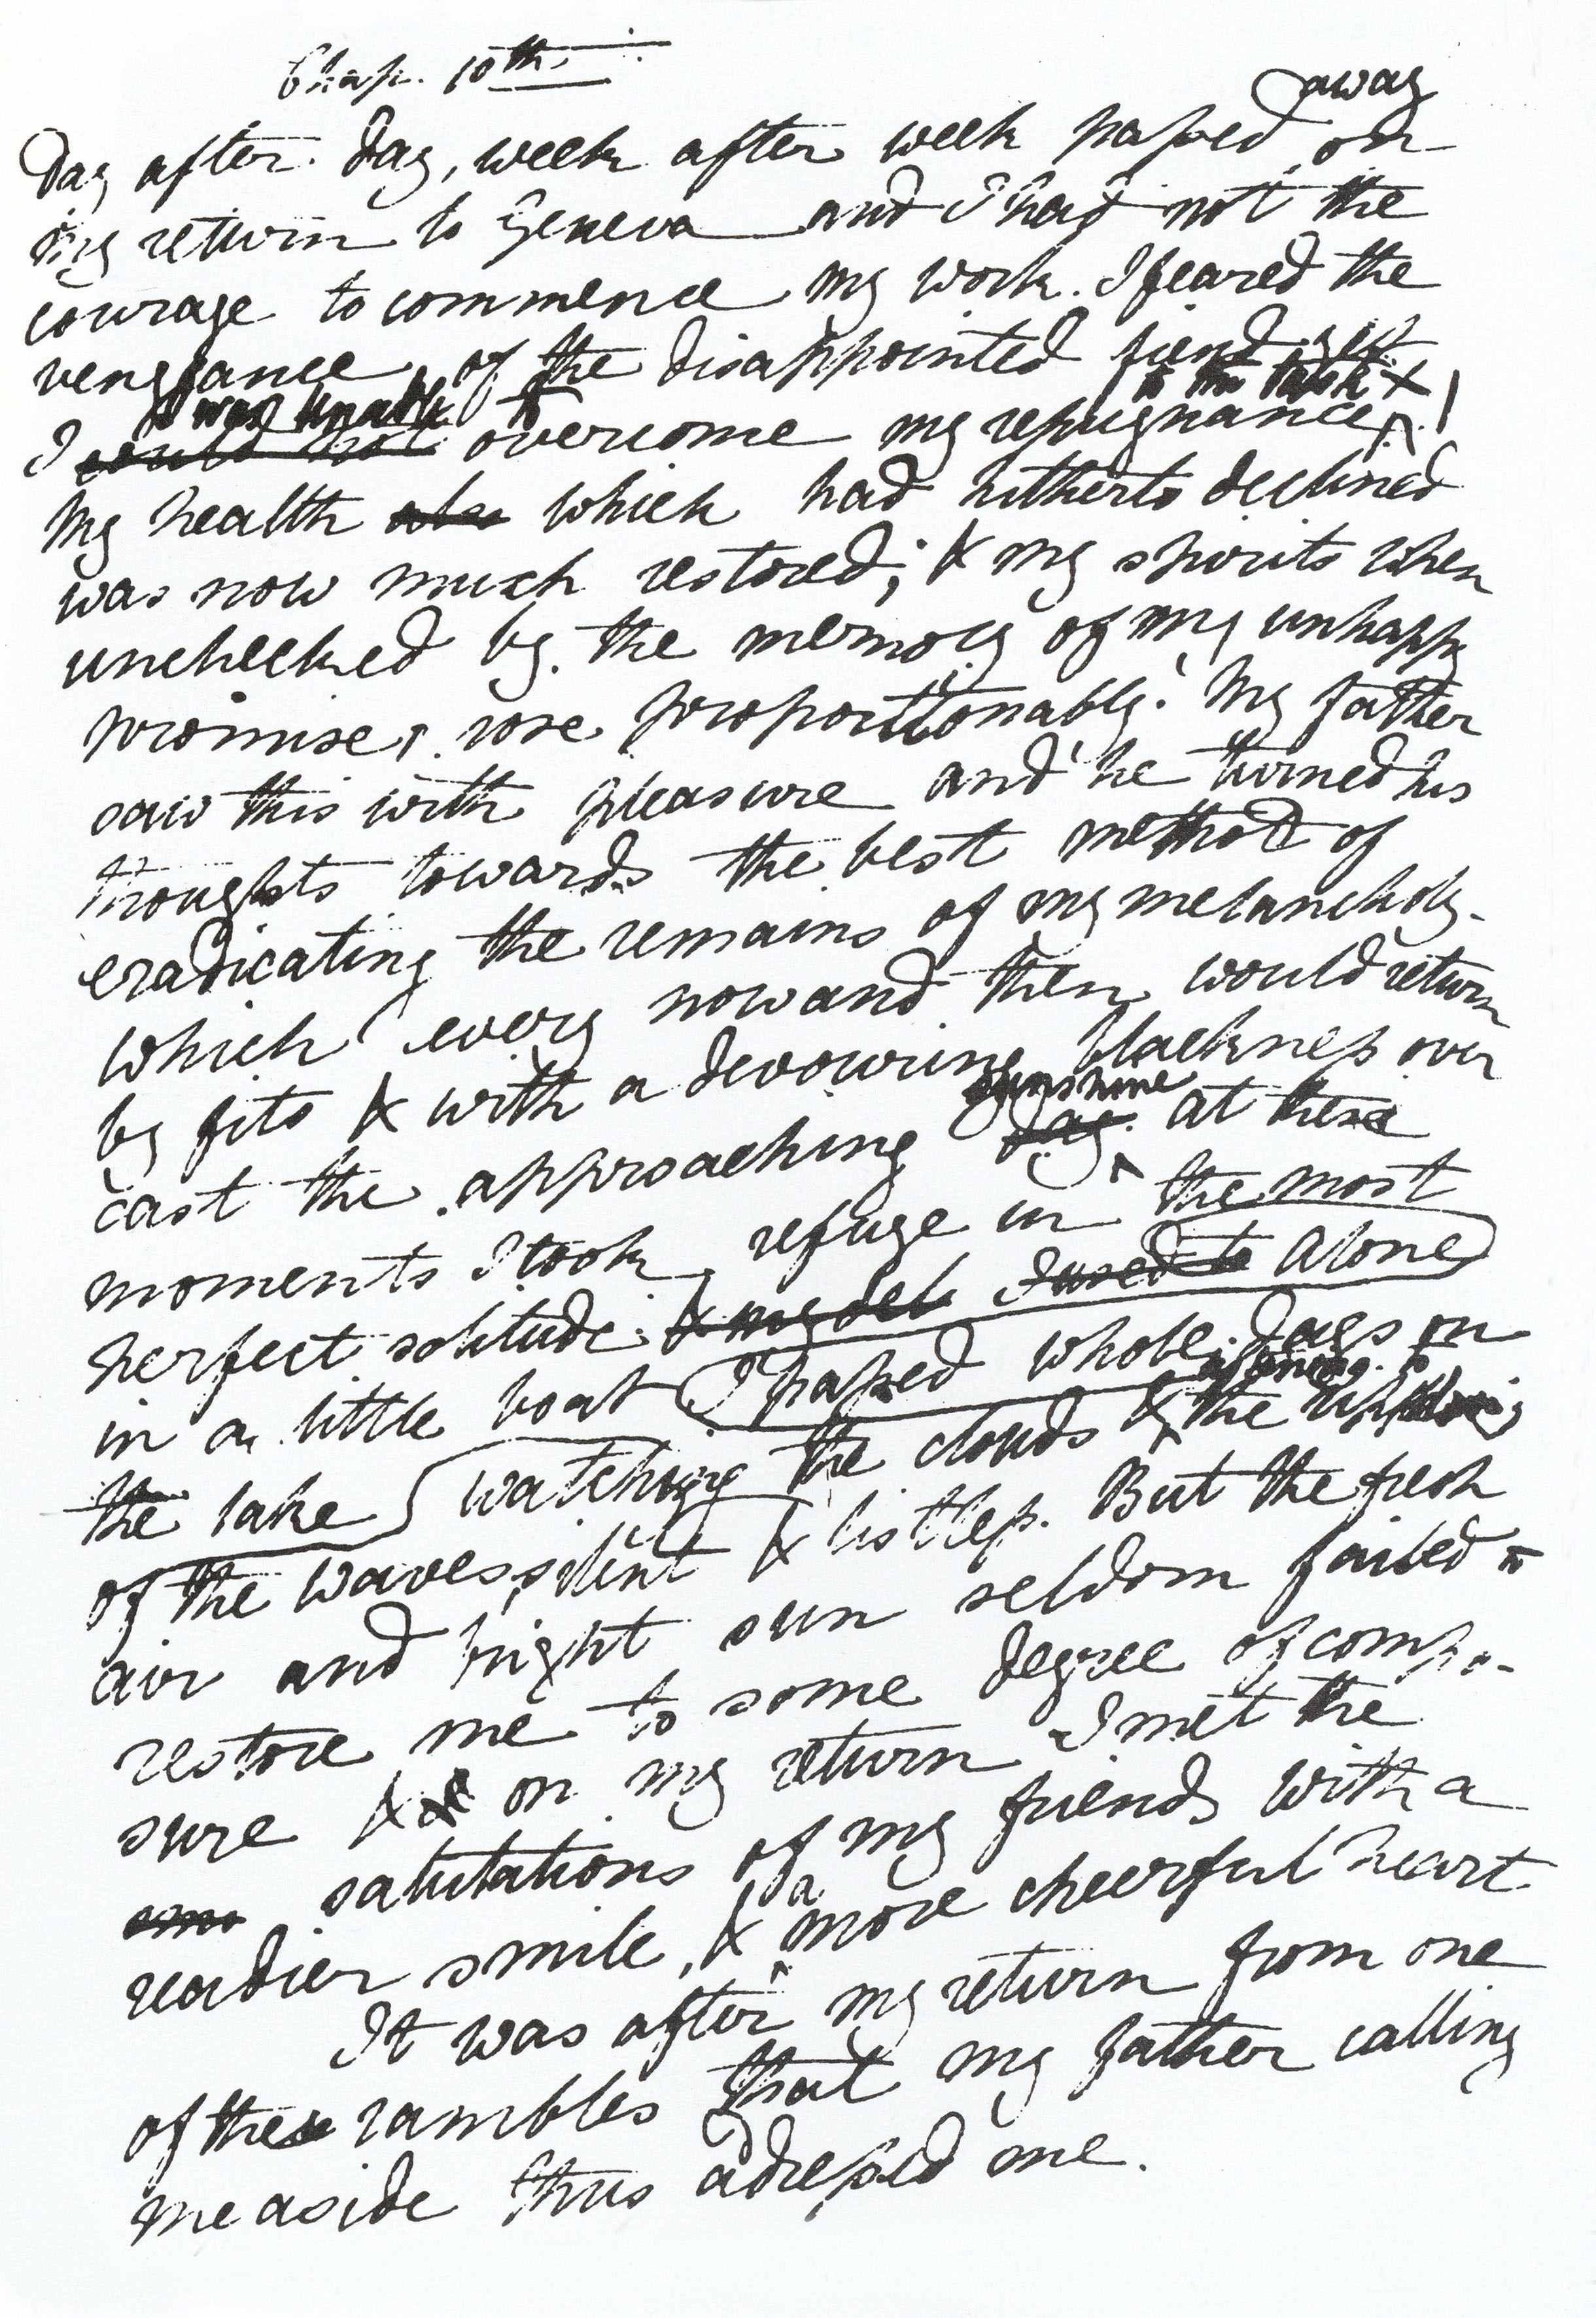 Chap. 10th
away
Day after day, week after week passed on
my return to Geneva and I had not the
courage to commence my work. I feared the
vengeance of the disappointed fiend yet
was unable to to the task
I could not overcome my repugnance
My health also which had hitherto declined
was now much restored; & my spirits when
unchecked by the memory of my unhappy
promise, rose proportionably. My father
saw this with pleasure and he turned his
thoughts towards the best method of
eradicating the remains of my melancholy
which every now and then would return
by fits & with a devouring blackness over
sunshine
cast the approaching day. at these
moments I took refuge in the most
perfect solitude. & my I used to alone
in a little boat I passed whole days on
the lake watching the clouds & the
of the waves, silent & listless. But the fresh
air and bright sun seldom failed to
restore me to some degree of compo-
sure & on my return I met the
salutations of my friends with a
readier smile, & a more cheerful heart
It was after my return from one
of these rambles that my father calling
me aside thus adressed me.